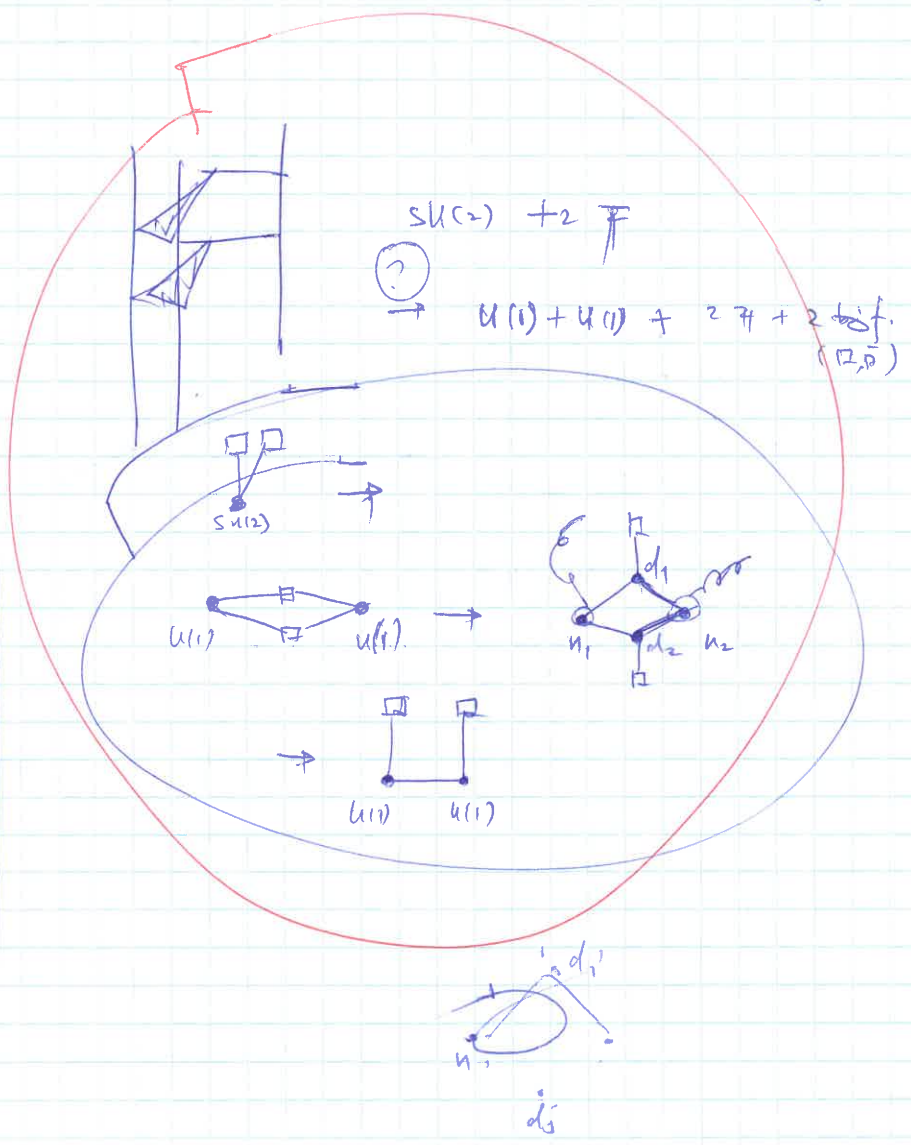 SU(2) + 2 F
?
→ U(1) + U(1) + 2 F + 2 bif.
(□, □̄)
SU(2)
→
U(1) U(1) →
d₁
n₁ d₂ n₂
→
U(1) U(1)
d₁'
n₁
dj